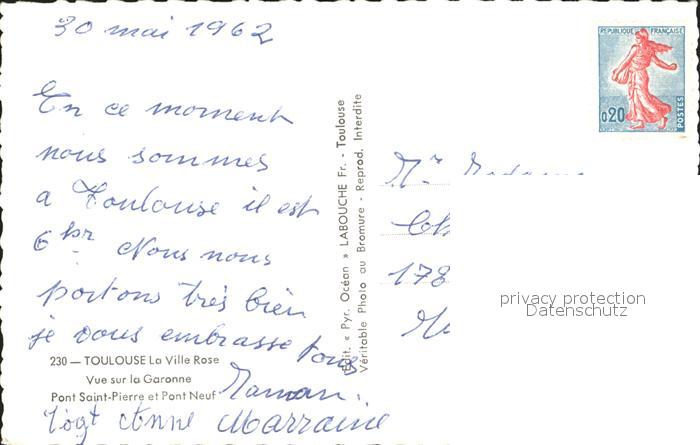 30 mai 1962
En ce moment
nous sommes
a Toulouse il est
6 hr Nous nous
portons très bien
je vous embrasse tous
Maman.
Anne Marraine
230 — TOULOUSE La Ville Rose
Vue sur la Garonne
Pont Saint-Pierre et Pont Neuf
Édit. « Pyr. Océan » LABOUCHE Fr. - Toulouse
Véritable Photo au Bromure - Reprod. Interdite
REPUBLIQUE FRANÇAISE
0,20
POSTES
Mr
178
privacy protection
Datenschutz